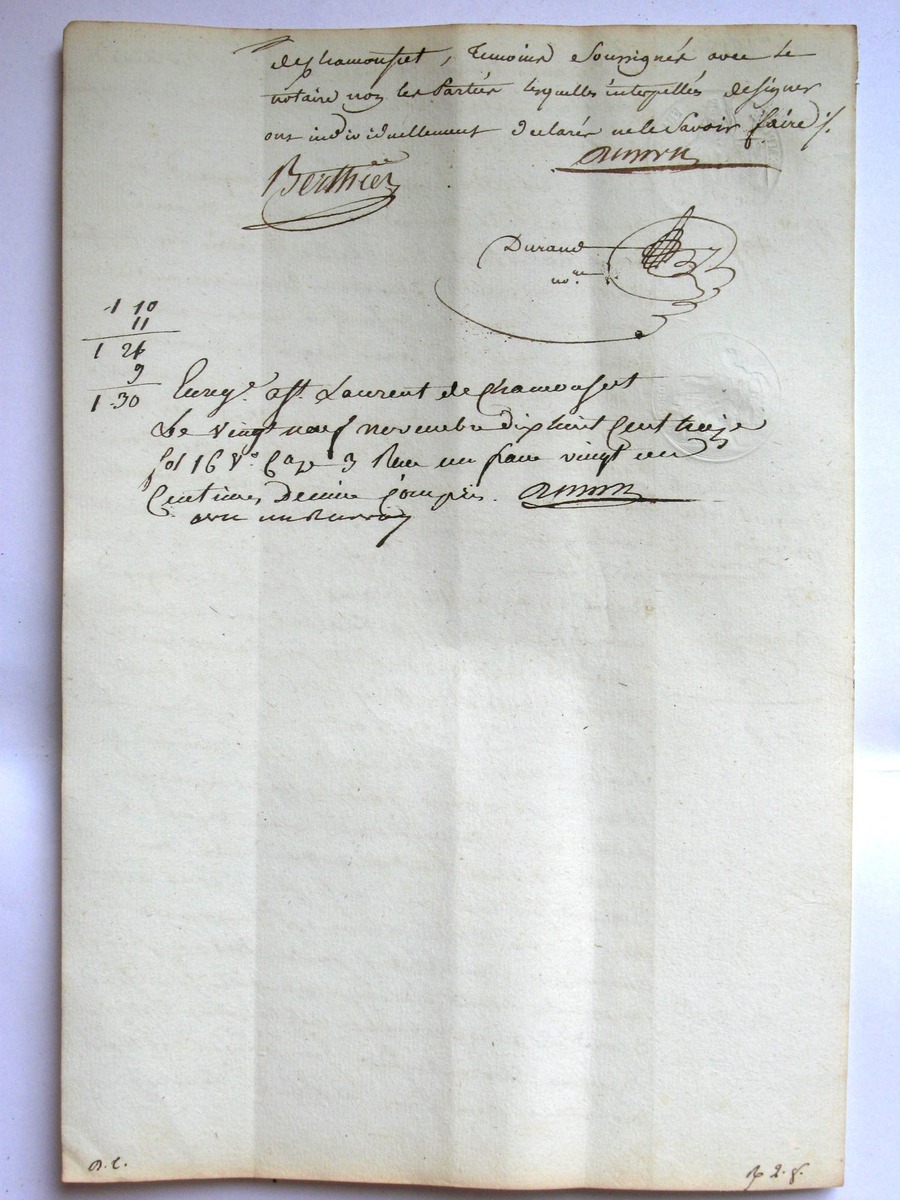 de chamousset, Temoins Soussignés avec le
notaire non les Parties lesquelles interpellées de signer
ont individuellement declarés ne le Savoir faire ./.
Berthier
Durand
no.re
1 10
11
1 21
9
1 30
Enreg.é a St. Laurent de chamousset
Le vingt neuf novembre dix huit Cent treize
fol 168 v.o Caze 3 Reçu un franc vingt un
Centimes Decime Compris.
avec un Renvoy